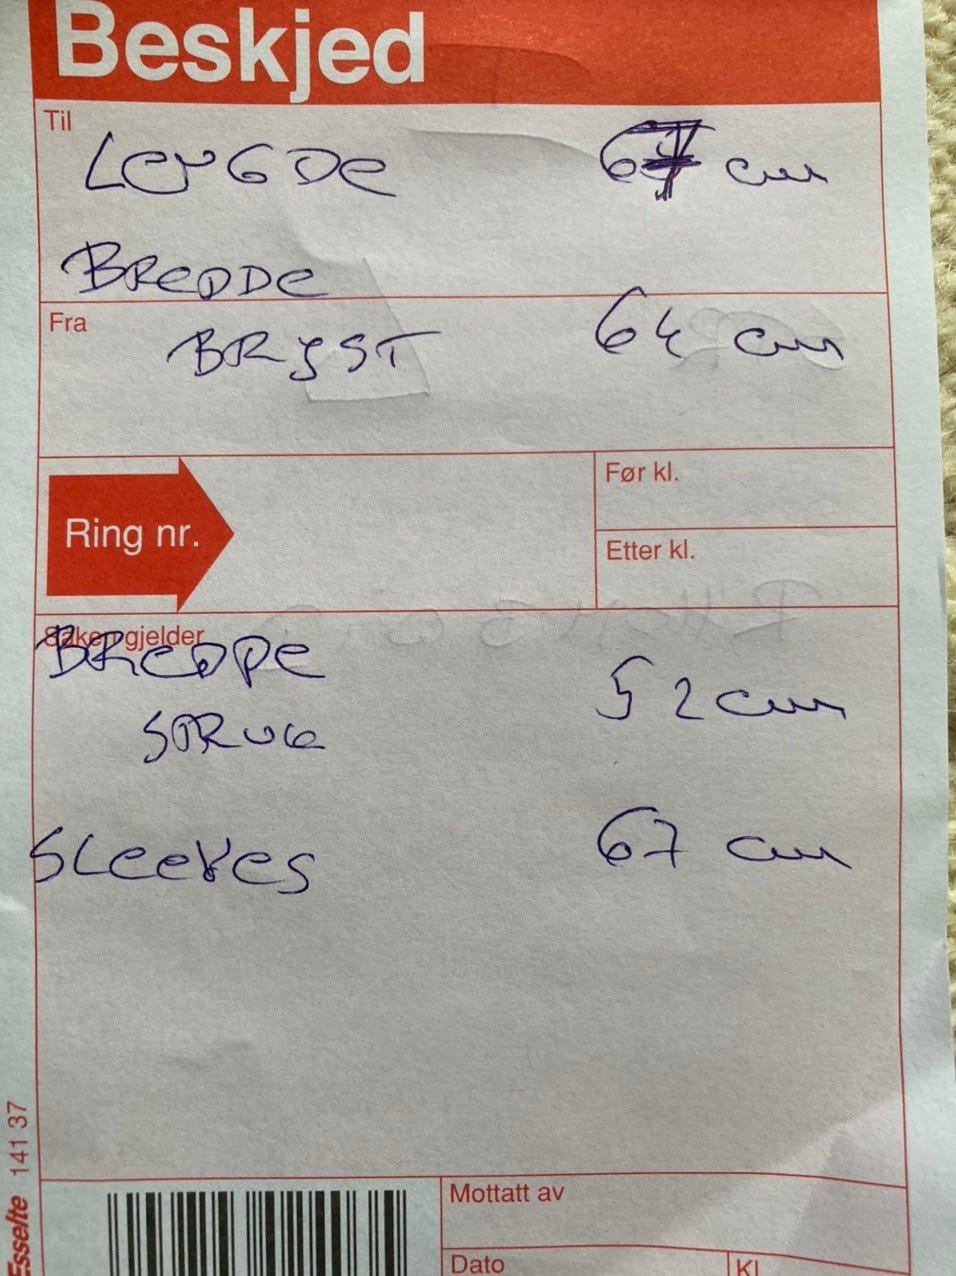 Beskjed
Til
LENGDE 67 cm
BREDDE
Fra
BRYST 64 cm
Ring nr.
Før kl.
Etter kl.
Saken gjelder
BREDDE 52 cm
SKRUG
SLEEVES 67 cm
Esselte 141 37
Mottatt av
Dato
Kl.